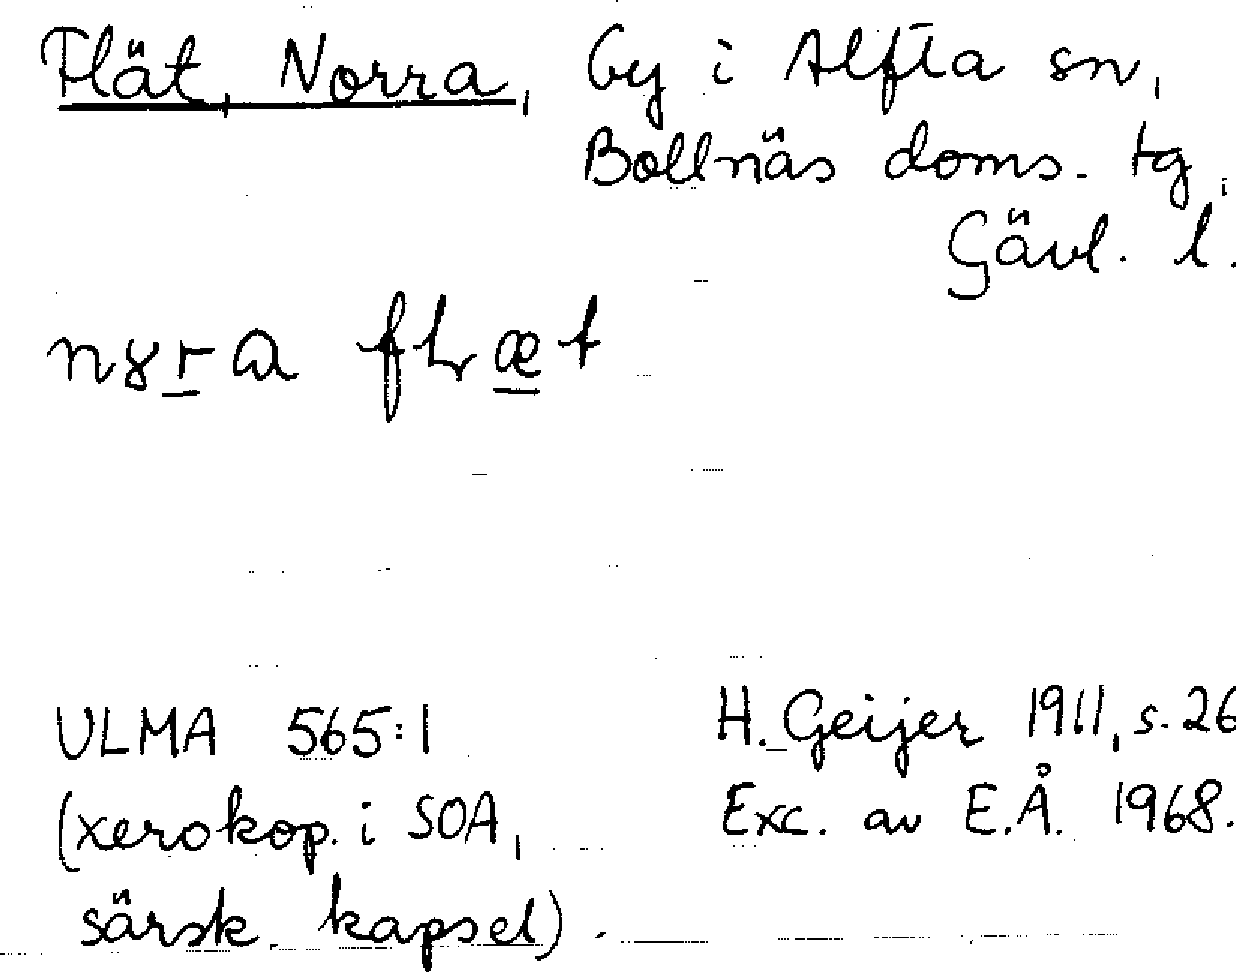 Flät, Norra, by i Alfta sn,
Bollnäs doms. tg,
Gävl. l.
ULMA 565:1
(xerokop. i SOA,
särsk. kapsel).
H. Geijer 1911, s. 26
Exc. av E.Å. 1968.